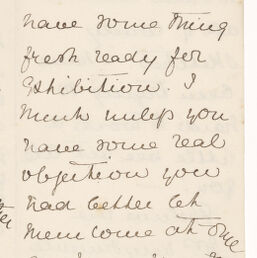 have some thing
fresh ready for
Exhibition. I
think unless you
have some real
objection you
had better let
them come at one